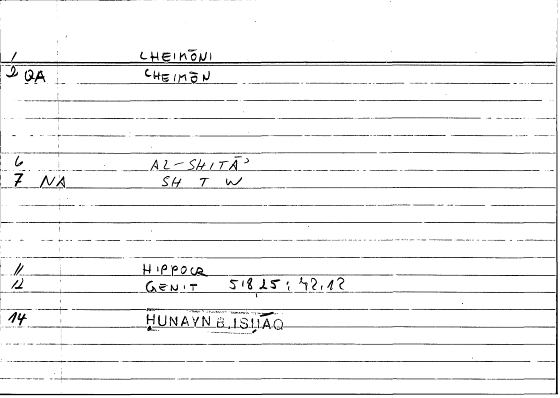 1 CHEIMŌNI
2 QA CHEIMŌN
6 AL-SHITĀʾ
7 NA SH T W
11 HIPPOCR
12 GENIT 518,25; 42,12
14 ḤUNAYN B. ISḤĀQ